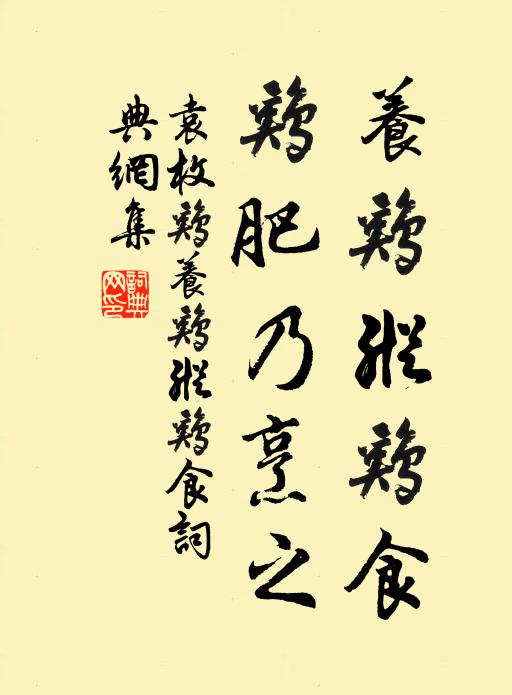 養鷄縱鷄食
鷄肥乃烹之
袁枚鷄養鷄縱鷄食詞
典網集
詞典網印